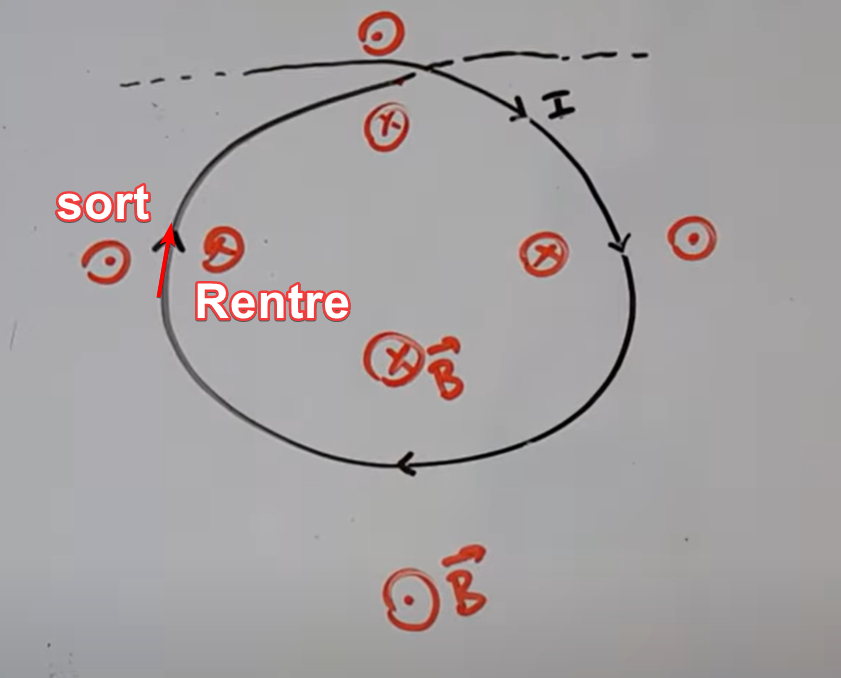 I
sort
Rentre
B
B